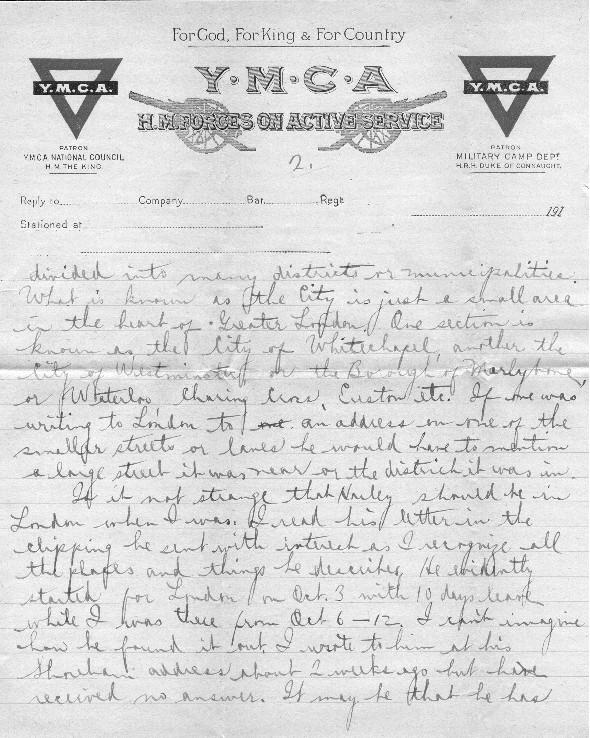 For God, For King & For Country
Y.M.C.A.
Y.M.C.A
Y.M.C.A.
H.M. FORCES ON ACTIVE SERVICE
PATRON
Y.M.C.A NATIONAL COUNCIL
H.M. THE KING.
PATRON
MILITARY CAMP DEPT.
H.R.H. DUKE OF CONNAUGHT.
2.
Reply to Company Bat. Regt
191
Stationed at
divided into many districts or municipalities.
What is known as the City is just a small area
in the heart of Greater London. One section is
known as the City of Whitechapel, another the
City of Westminster or the Borough of Marlybone
or Waterloo, Charing Cross, Euston etc. If one was
writing to London to an address on one of the
smaller streets or lanes he would have to mention
a large street it was near or the district it was in.
Is it not strange that Harley should be in
London when I was. I read his letter in the
clipping he sent with interest as I recognize all
the places and things he describes. He evidently
started for London on Oct. 3 with 10 days leave
while I was there from Oct 6 - 12. I can't imagine
how he found it out. I wrote to him at his
Shoreham address about 2 weeks ago but have
received no answer. It may be that he has